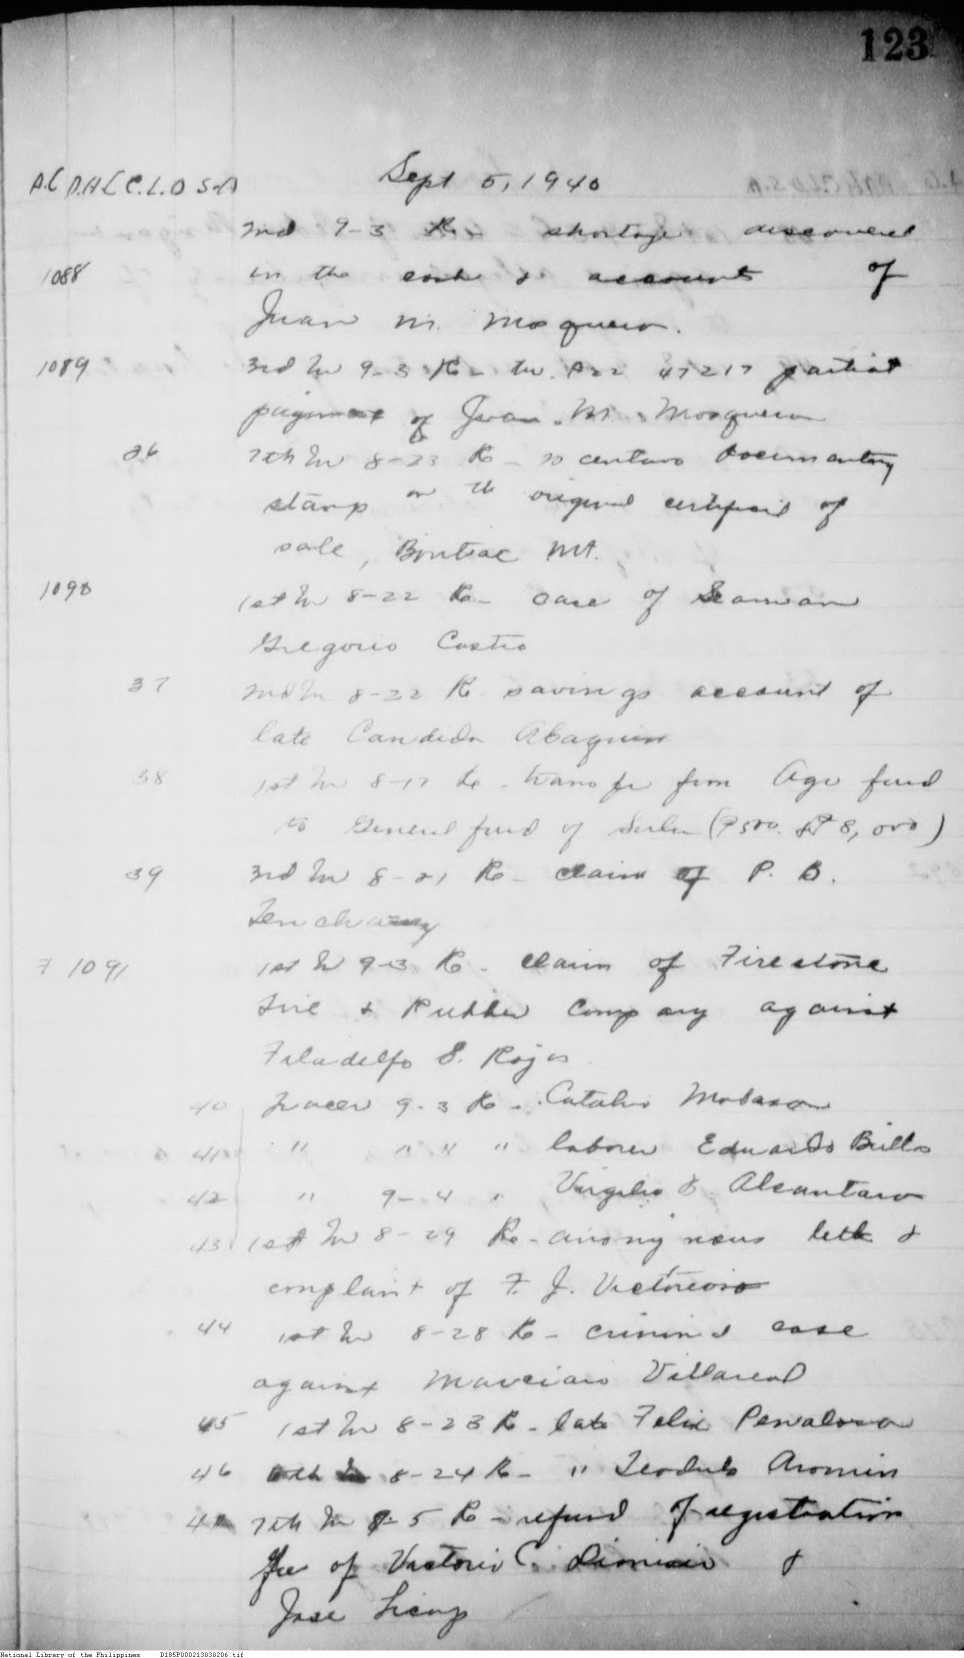 123
Sept 5, 1940
A.C D.A.C C.L.O S-A
2nd 9-3 Re- shortage discovered
1088 in the cash & accounts of
Juan M. Mosquera.
1089 3rd In 9-3 Re- tw. 47217 partial
payment of Juan M. Mosquera
36 7th In 8-23 Re- centavo Documentary
stamp on the original certificate of
sale, Pontiac Mt.
1090 1st In 8-22 Re- case of Seaman
Gregorio Castro
37 2nd In 8-22 Re savings account of
late Candida Abaquin
38 1st In 8-17 Re- transfer from Agr fund
to General fund of (₱500. 8,000)
39 3rd In 8-21 Re- claim of P. B.
Tenchavez
7 1091 1st In 9-3 Re- claim of Firestone
Tire & Rubber Company against
Filadelfo S. Rojas
40 Tracer 9-3 Re- Catalio
41 " " " " laborer Eduardo Brillo
42 " 9-4 " Virgilio Alcantara
43 1st In 8-29 Re- anonymous letter &
complaint of F. J. Victorioso
44 1st In 8-28 Re- criminal case
against Marciano Villareal
45 1st In 8-23 Re- late Felix Penalosa
46 In 8-24 Re- " Teodulo Aromin
7th In 8-5 Re- refund of registration
fee of Victorio C. Dionisio &
Jose Licup
National Library of the Philippines D185P000213838206.tif